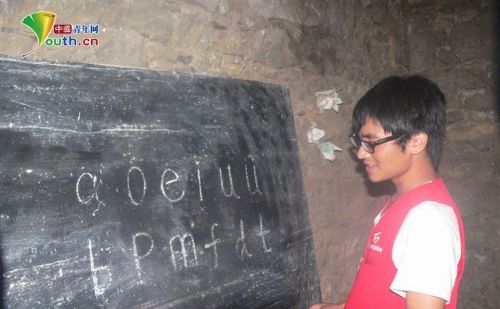 中国青年网
Youth.cn
a o e i u ü
b p m f d t